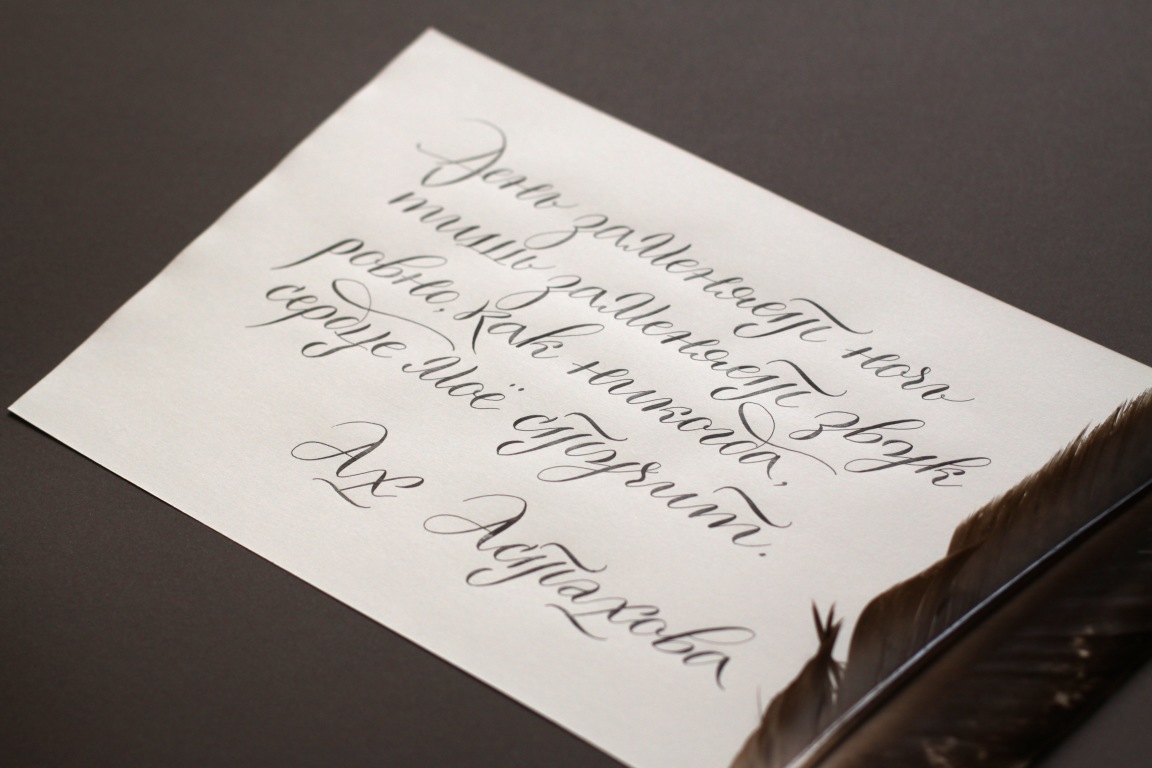 День заменяет ночь
тишь заменяет звук
ровно, как никогда,
сердце моё стучит.
Ах Астахова